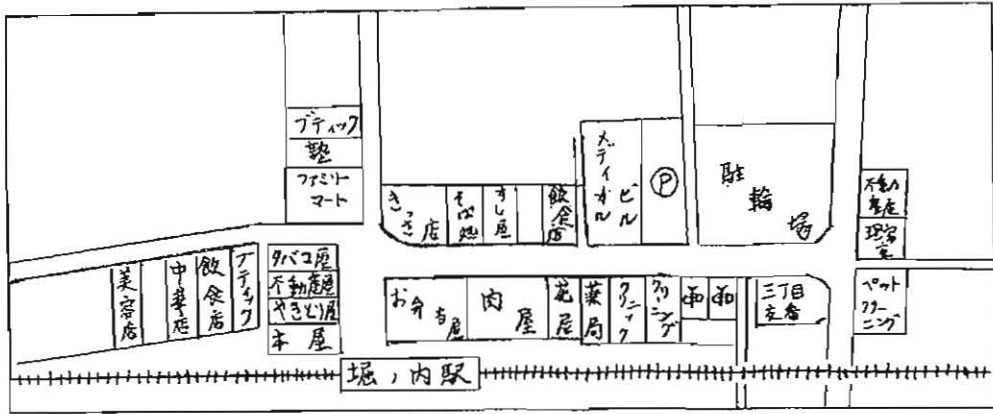 ブティック
塾
ファミリー
マート
きっさ店
そば処
すし屋
飲食店
メディカル
ビル
P
駐輪場
不動産屋
理容室
ペット
クリーニング
美容店
中華店
飲食店
ブティック
タバコ屋
不動産屋
やきとり屋
本屋
お弁当屋
肉屋
花屋
薬局
クリニック
クリーニング
三丁目
交番
堀ノ内駅